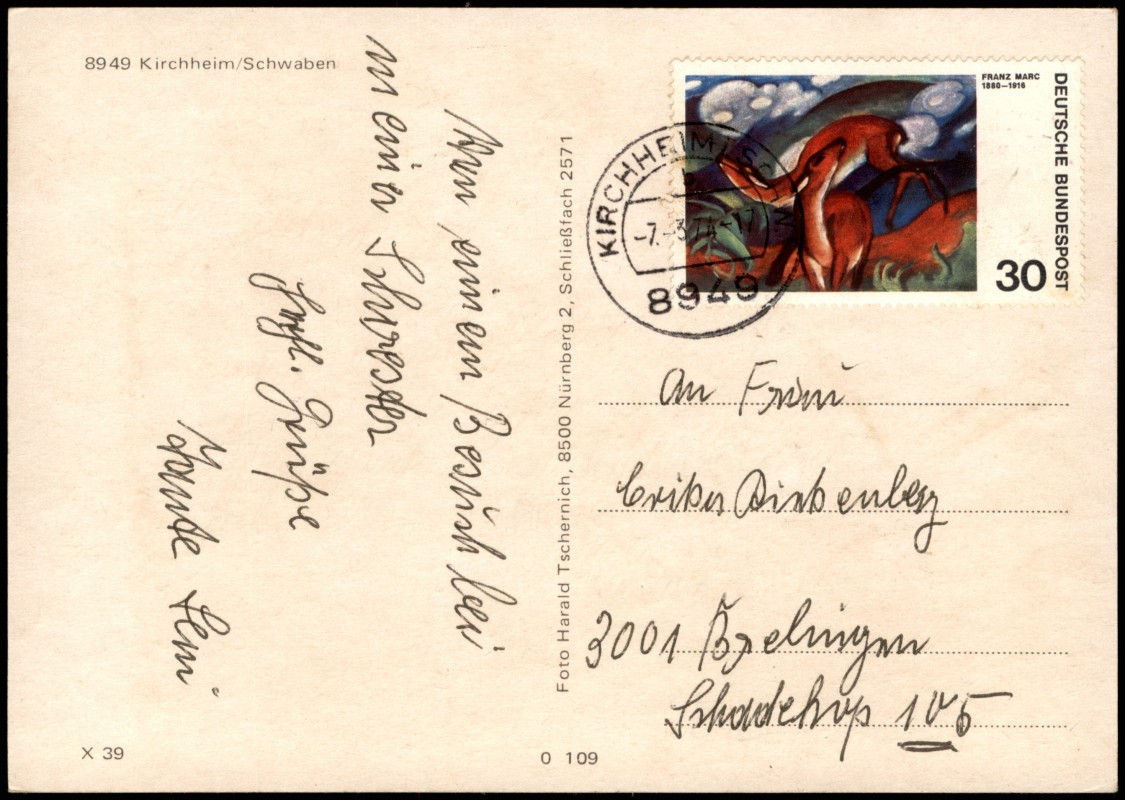 8949 Kirchheim/Schwaben
Von einem Besuch bei
meiner Schwester
Hrzl. Grüße
Tante Leni
Foto Harald Tschernich, 8500 Nürnberg 2, Schließfach 2571
FRANZ MARC
1880–1916
DEUTSCHE BUNDESPOST
30
KIRCHHEIM/SCHW
b
-7.-3.74-17
8949
An Frau
Erika Dirkenberg
3001 Brelingen
Schadehop 105
X 39
O 109